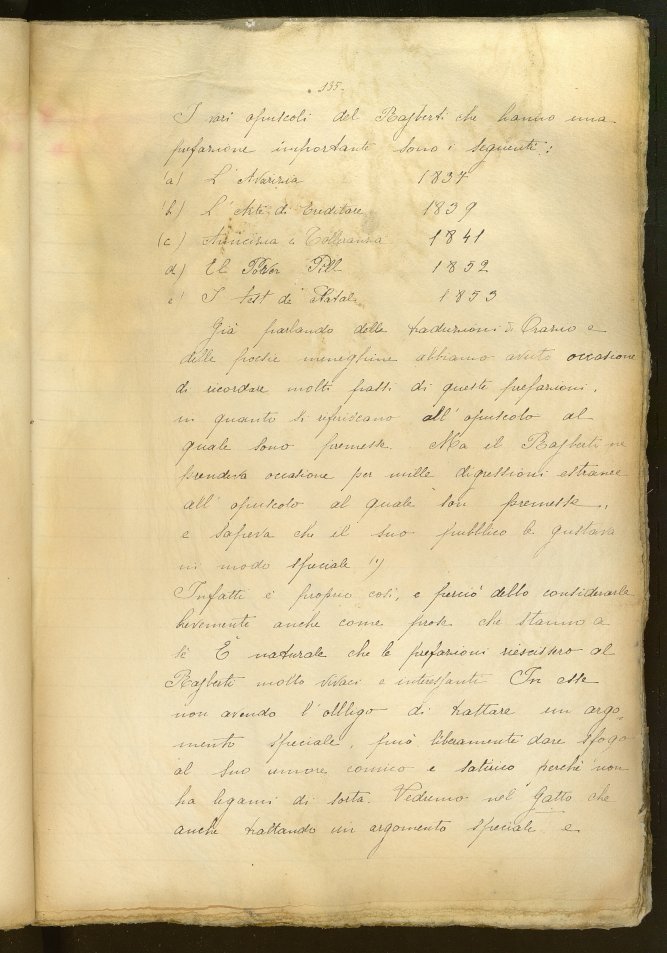 135.
I vari opuscoli del Rajberti che hanno una
prefazione importante sono i seguenti:
a) L'Avarizia 1837
b) L'Arte di Ereditare 1839
(c) Amicizia e Tolleranza 1841
d) El Pover Pill 1852
e) I fest de Natal 1853
Già parlando delle traduzioni di Orazio e
delle poesie meneghine abbiamo avuto occasione
di ricordare molti passi di queste prefazioni,
in quanto si riferiscano all'opuscolo al
quale sono premesse. Ma il Rajberti ne
prendeva occasione per mille digressioni estranee
all'opuscolo al quale son premesse,
e sapeva che il suo pubblico le gustava
in modo speciale 1)
Infatti è proprio così, e perciò debbo considerarle
brevemente anche come prose che stanno a
sè. È naturale che le prefazioni riescissero al
Rajberti molto vivaci e interessanti. In esse
non avendo l'obbligo di trattare un argo-
mento speciale, può liberamente dare sfogo
al suo umore comico e satirico, perchè non
ha legami di sorta. Vedremo nel Gatto che
anche trattando un argomento speciale e